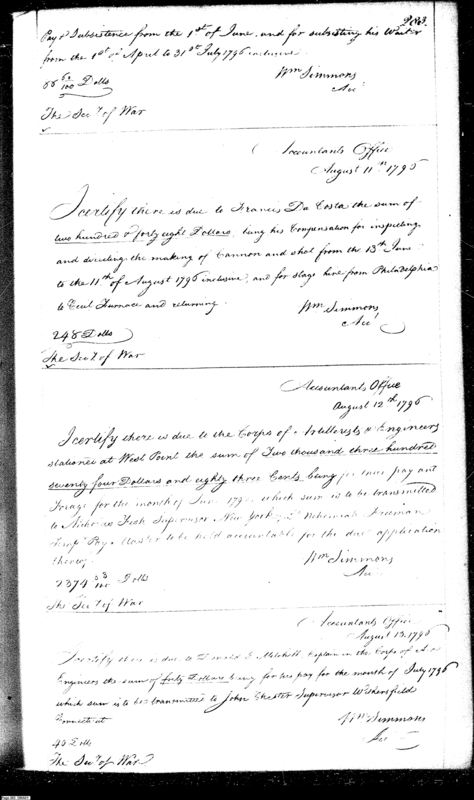 283.
Pay & Subsistence from the 1st of June, and for subsisting his Waiter
from the 1st of April to 31st July 1796 inclusive
66 60/100 Dolls
Wm Simmons
Acct
The Secy of War
Accountants Office
August 11th 1796
I certify there is due to Francis Da Costa the sum of
two hundred & forty eight Dollars, being his Compensation for inspecting
and directing the making of Cannon and shot from the 13th June
to the 11th of August 1796 inclusive, and for stage hire from Philadelphia
to Cecil Furnace and returning
Wm Simmons
Acct
248 Dolls
The Secy of War
Accountants Office
August 12th 1796
I certify there is due to the Corps of Artillerists & Engineers
stationed at West Point the sum of Two thousand three hundred
seventy four Dollars and eighty three Cents being for their pay and
Forage for the month of June 1796 which sum is to be transmitted
to Nicholas Fish Supervisor New York & Lt Nehemiah Freeman
Tempy Pay Master to be held accountable for the due application
thereof
Wm Simmons
Acct
2374 83/100 Dolls
The Secy of War
Accountants Office
August 13, 1796
I certify there is due to Donald G. Mitchell, Captain in the Corps of A &
Engineers the sum of forty Dollars being for his pay for the month of July 1796
which sum is to be transmitted to John Chester Supervisor Wethersfield
Connecticut
Wm Simmons
Acct
40 Dolls
The Secy of War